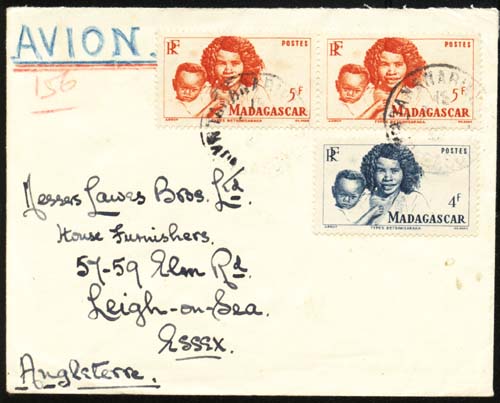 AVION.
156
RF POSTES
5F
MADAGASCAR
TYPES BETSIMISARAKA
RF POSTES
5F
MADAGASCAR
TYPES BETSIMISARAKA
RF POSTES
4F
MADAGASCAR
TYPES BETSIMISARAKA
Messers Lawes Bros. Ltd
House Furnishers.
57-59 Elm Rd.
Leigh-on-Sea.
ESSEX.
Angleterre.